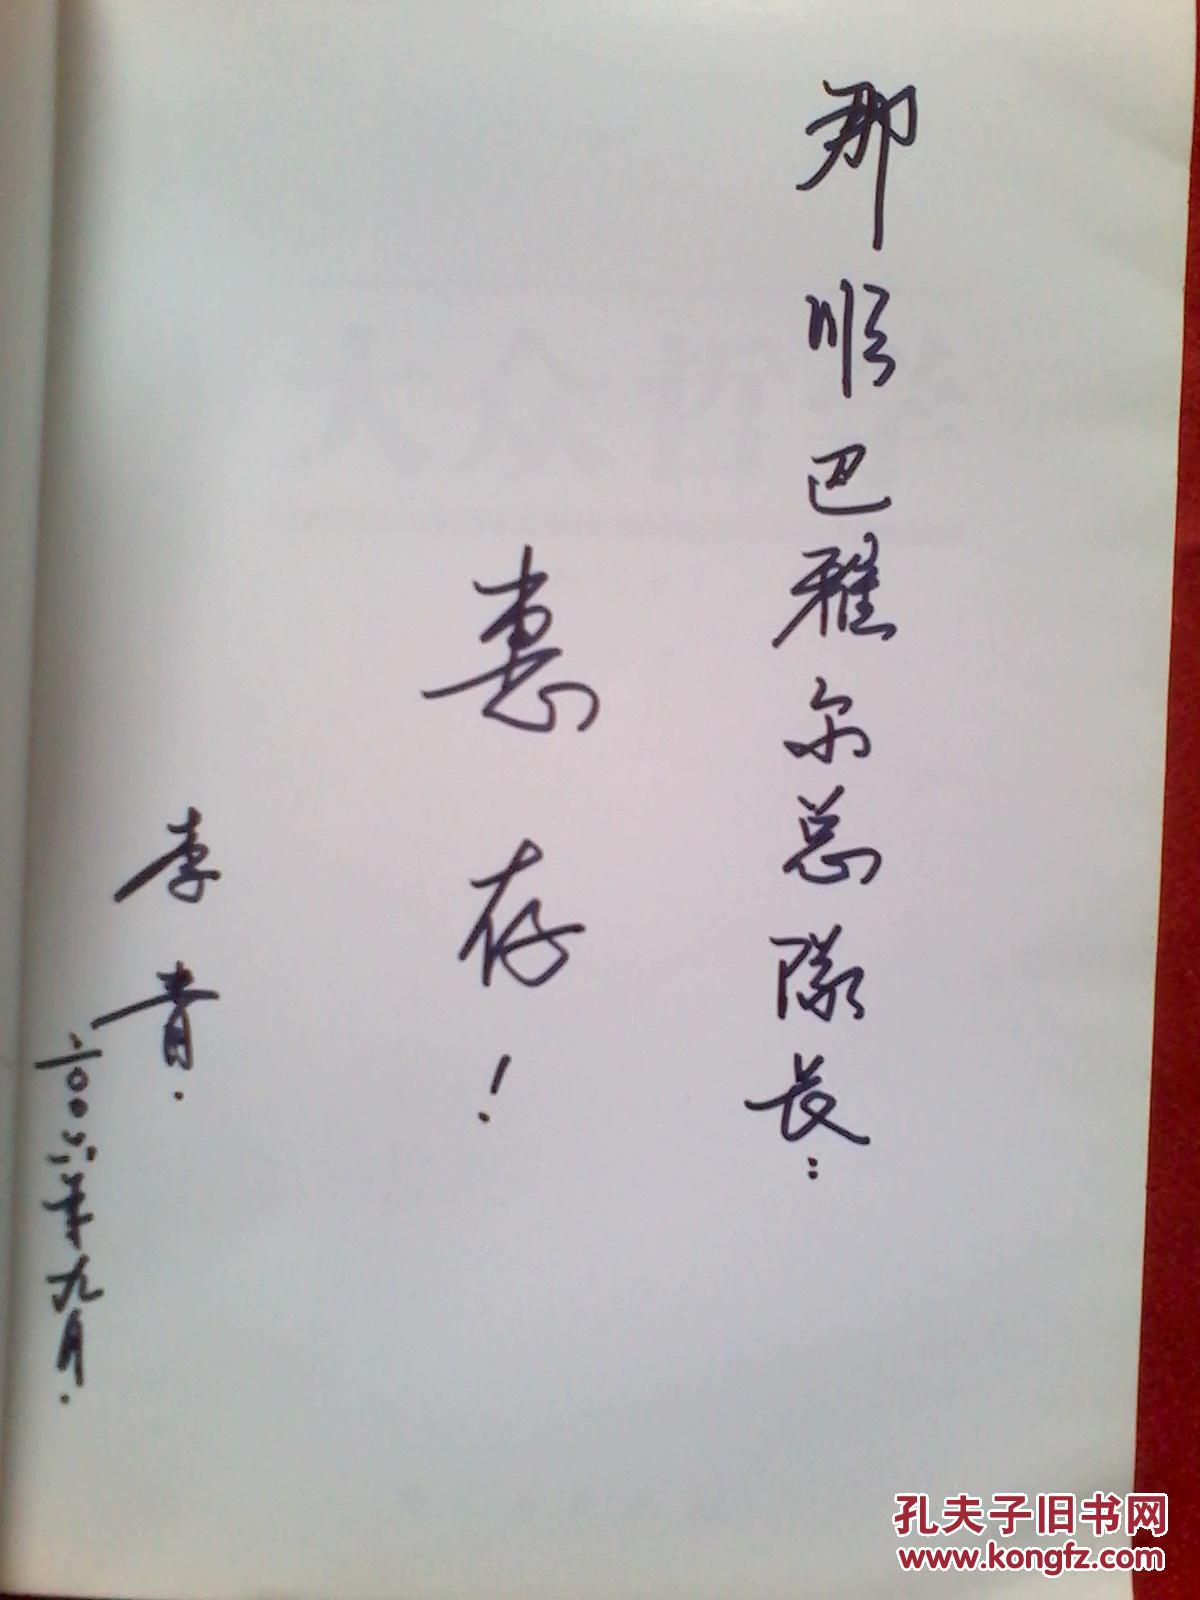 那顺巴雅尔总隊长：
惠存！
李青.
二〇〇六年九月.
大众哲学
孔夫子旧书网
www.kongfz.com